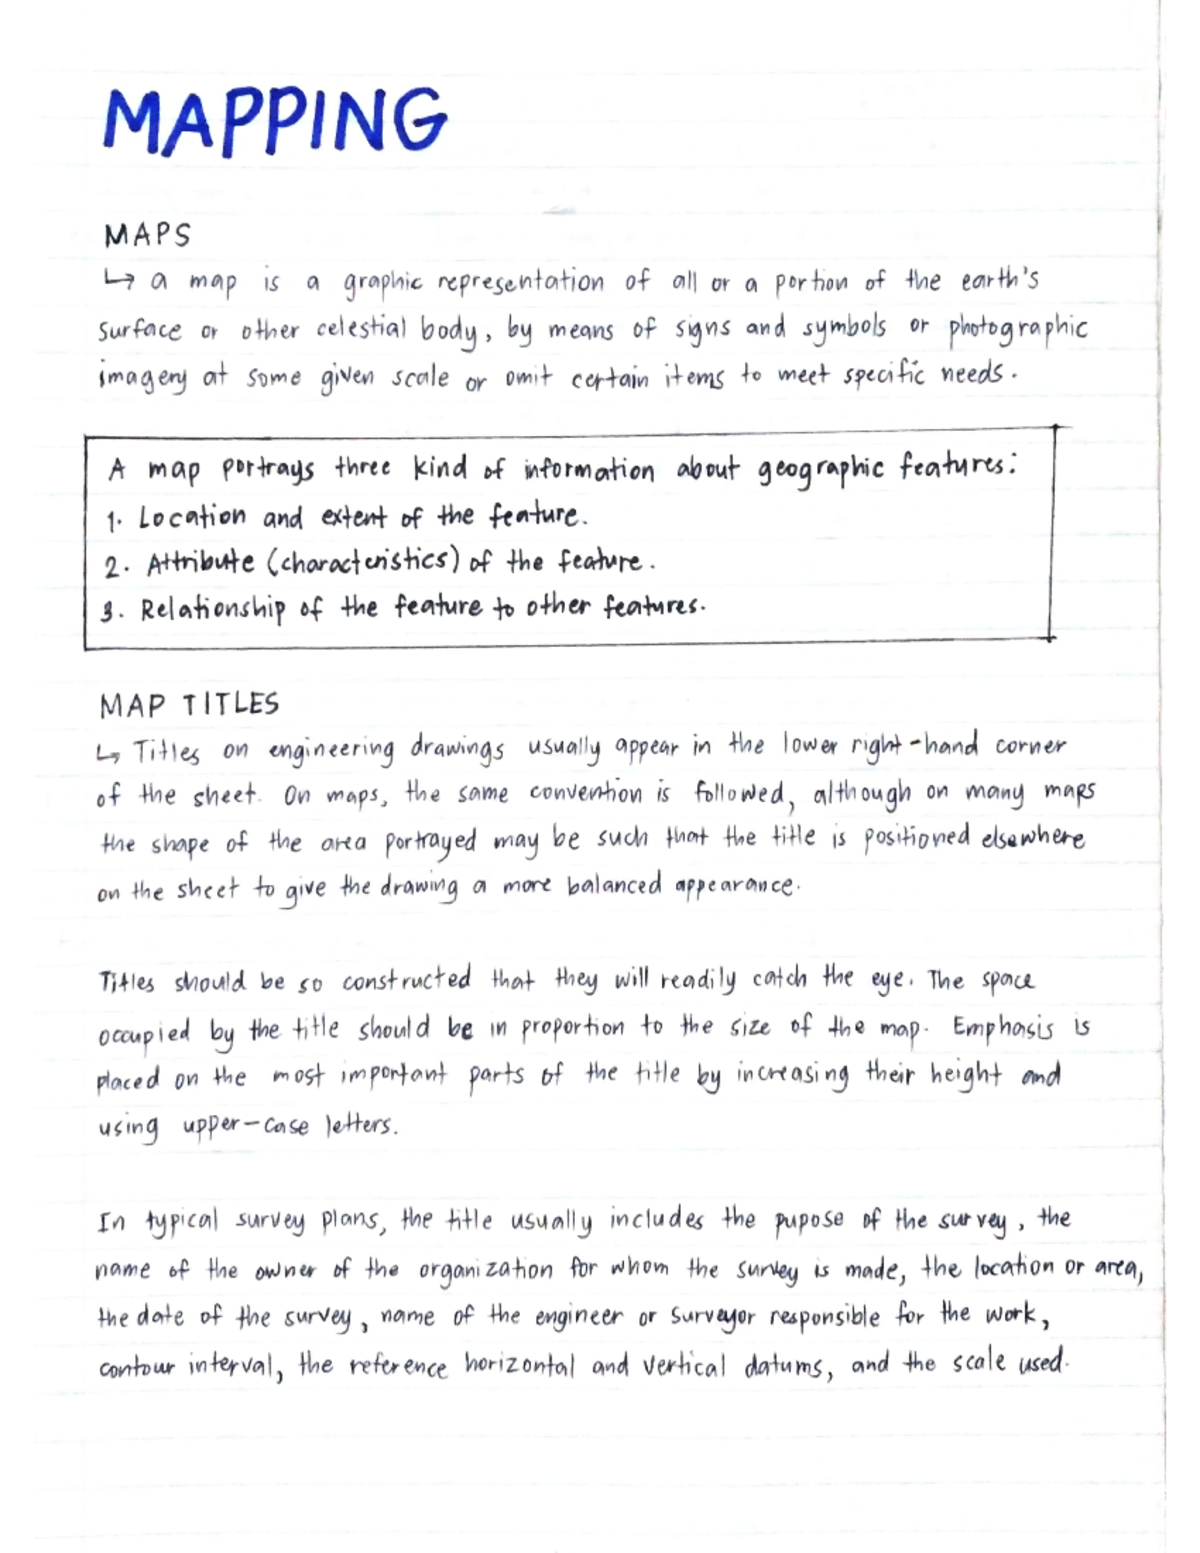 MAPPING
MAPS
↳ a map is a graphic representation of all or a portion of the earth's
surface or other celestial body, by means of signs and symbols or photographic
imagery at some given scale or omit certain items to meet specific needs.
A map portrays three kind of information about geographic features:
1. Location and extent of the feature.
2. Attribute (characteristics) of the feature.
3. Relationship of the feature to other features.
MAP TITLES
↳ Titles on engineering drawings usually appear in the lower right-hand corner
of the sheet. On maps, the same convention is followed, although on many maps
the shape of the area portrayed may be such that the title is positioned elsewhere
on the sheet to give the drawing a more balanced appearance.
Titles should be so constructed that they will readily catch the eye. The space
occupied by the title should be in proportion to the size of the map. Emphasis is
placed on the most important parts of the title by increasing their height and
using upper-case letters.
In typical survey plans, the title usually includes the pupose of the survey, the
name of the owner of the organization for whom the survey is made, the location or area,
the date of the survey, name of the engineer or surveyor responsible for the work,
contour interval, the reference horizontal and vertical datums, and the scale used.